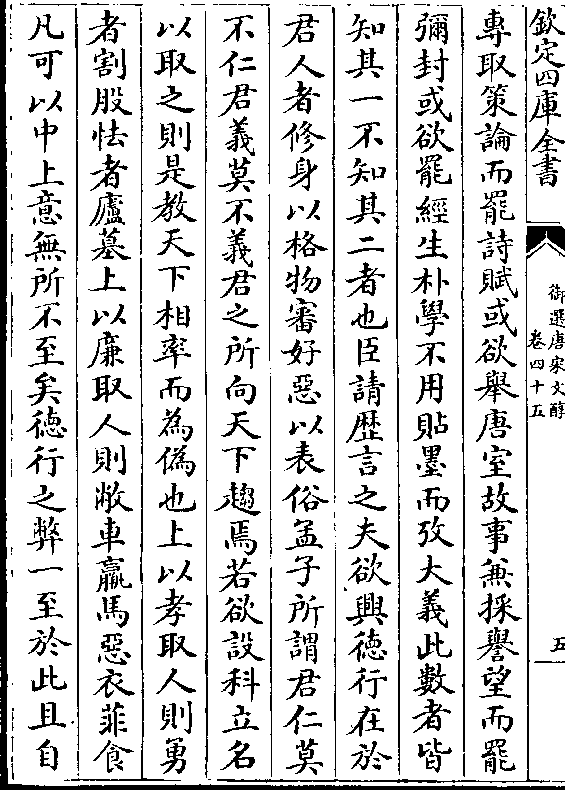 欽定四庫全書
御選唐宋文醇
卷四十五
五
專取策論而罷詩賦或欲舉唐室故事兼採譽望而罷
彌封或欲罷經生朴學不用貼墨而攷大義此數者皆
知其一不知其二者也臣請歴言之夫欲興德行在於
君人者修身以格物審好惡以表俗孟子所謂君仁莫
不仁君義莫不義君之所向天下趨焉若欲設科立名
以取之則是教天下相率而為偽也上以孝取人則勇
者割股怯者廬墓上以廉取人則敝車羸馬惡衣菲食
凡可以中上意無所不至矣德行之弊一至於此且自